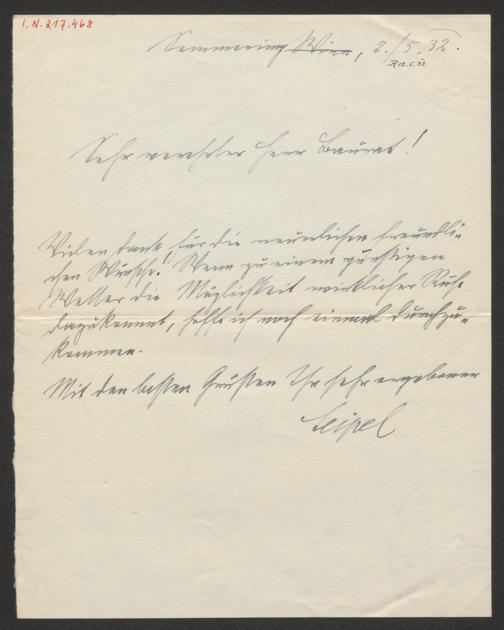 I.N. 217.468
Semmering Wien, 2./5.32.
R12.5.32
Sehr verehrter Herr Baurat!
Vielen Dank für die neuerlichen freundli-
chen Wünsche! Wenn zu einem günstigen
Wetter die Möglichkeit wirklicher Ruhe
dazukommt, hoffe ich noch einmal durchzu-
kommen.
Mit den besten Grüßen Ihr sehr ergebener
Seipel